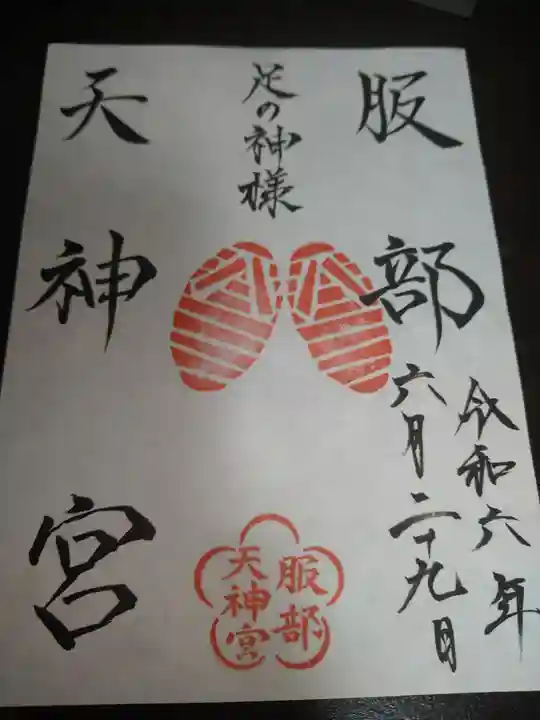 服部
令和六年
六月二十九日
足の神様
天神宮
服部
天神宮